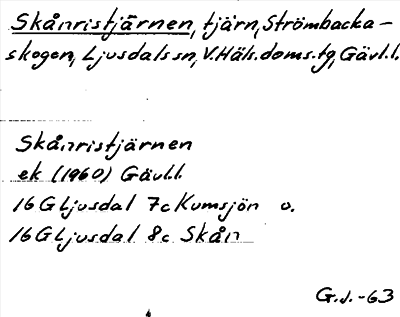 Skånristjärnen, tjärn, Strömbacka-
skogen, Ljusdals sn, V. Häls. doms. tg, Gävl. l.
Skånristjärnen
ek (1960) Gävl. l.
16 G Ljusdal 7c Kumsjön o.
16 G Ljusdal 8c Skån
G. J. -63